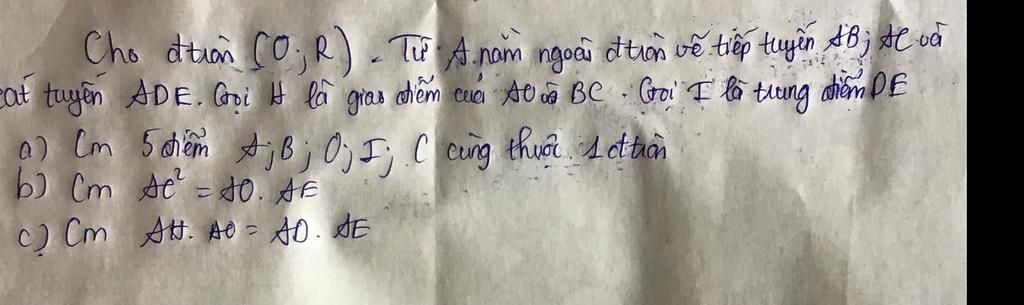 Cho đtròn (O;R). Từ A nằm ngoài đtròn vẽ tiếp tuyến AB; AC và
cát tuyến ADE. Gọi H là giao điểm của AO và BC. Gọi I là trung điểm DE
a) Cm 5 điểm A;B;O;I;C cùng thuộc 1 đtròn
b) Cm AC² = AD. AE
c) Cm AH. AO = AD. AE